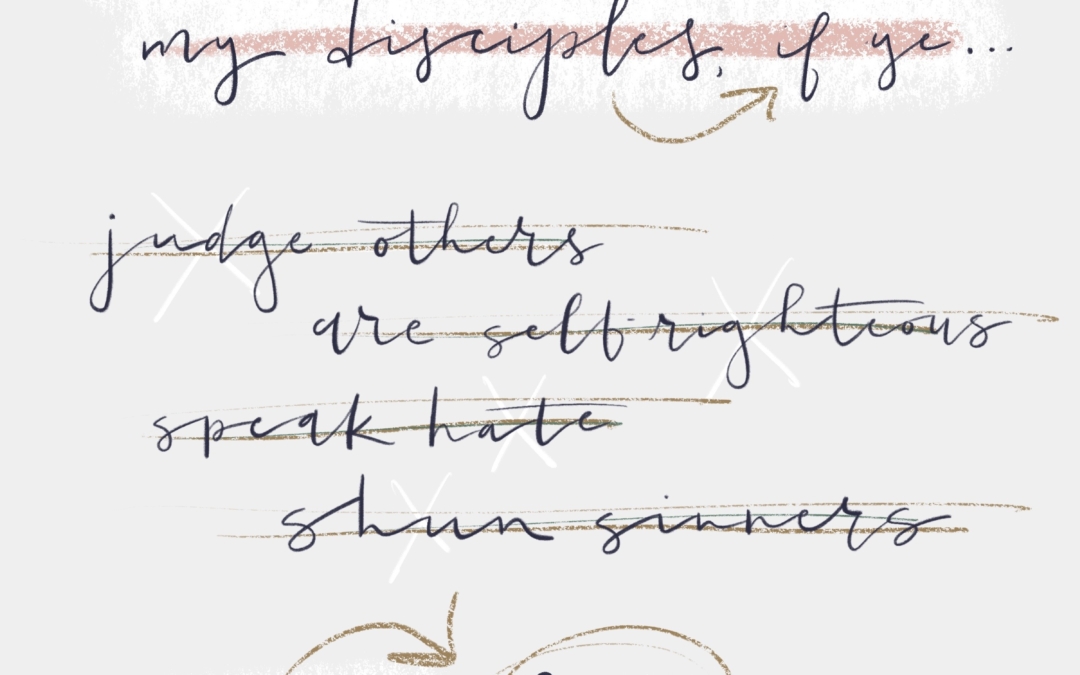 my disciples, if ye...
judge others
are self-righteous
speak hate
shun sinners